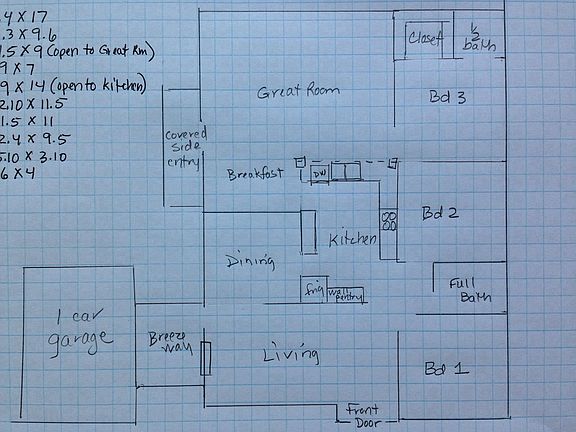 .4 X 17
.3 X 9.6
.5 X 9 (open to Great Rm)
9 X 7
9 X 14 (open to kitchen)
2.10 X 11.5
1.5 X 11
2.4 X 9.5
5.10 X 3.10
6 X 4
Closet
1/2
bath
Great Room
Bd 3
Covered
side
entry
Breakfast
DW
Bd 2
Kitchen
Dining
frig
wall
pantry
Full
Bath
1 car
garage
Breeze
way
Living
Bd 1
Front
Door